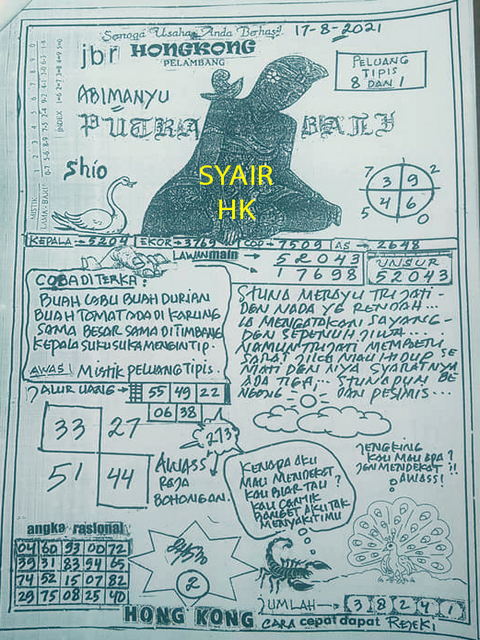 Semoga Usaha Anda Berhasil
17-8-2021
jbr HONGKONG
PELAMBANG
PELUANG
TIPIS
8 DAN 1
ABIMANYU
PUTRA BALI
Shio
SYAIR
HK
7 2
3 9
4 6
5 0
KEPALA → 5204 EKOR → 3769 COP → 7509 AS → 2648
LAWAN main → 52043
17698
UNSUR
52043
COBA DITERKA:
BUAH LABU BUAH DURIAN
BUAH TOMAT ADA DI KARUNG
SAMA BESAR SAMA DITIMBANG
KEPALA SUKU SUKA MENGINTIP.
AWAS! MISTIK PELUANG TIPIS.
STUNA MERAYU TRIJATI-
DEN NADA YG RENDAH-
IA MENGATAKAN SAYANG-
DEN SEPENUH JILA..
NAMUN TRIJATI MEMBERI
SARAT JILA MAU HIDUP SE
MATI DEN NIYA SYARATNYA
ADA TIGA,... STUNAPUN BE
NGONG DAN PESIMIS...
JALUR UANG → 55 49 22
06 38
33 27
51 44
213
AWASS
RAJA
BOHONGAN.
KENAPA AKU
MAU MENDEKAT
KAU BIAR TAU?
KAU CANTIK
BANGET AKU TAK
MENYAKITIMU
JENGKING
KAU MAU APA?
JGN MENDEKAT!!
AWASS!
angka rasional
04 60 93 00 72
39 31 83 94 65
74 52 15 07 82
29 75 08 25 40
2
JUMLAH → 3 8 2 4 1
HONG KONG CARA cepat dapat REJEKI